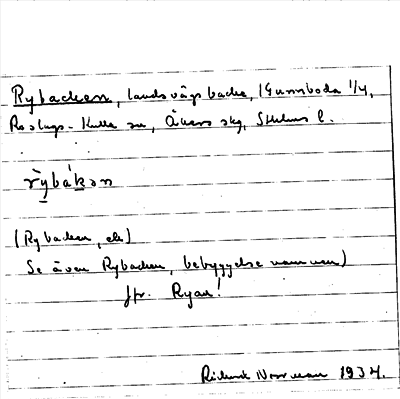 Rybacken, landsvägsbacke, (Gunnboda 1/4,
Roslags-Kulla sn, Åkers skg, Sthlms l.
rỳbákən
(Rybacken, elr)
Se även Rybacken, bebyggelsenamnen)
Jfr. Ryan!
Rickard Norrman 1934.